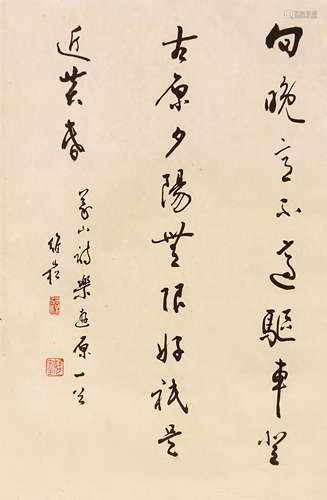 向晚意不適驅車登
古原夕陽無限好祇是
近黃昏
義山詩樂遊原一首
維崧